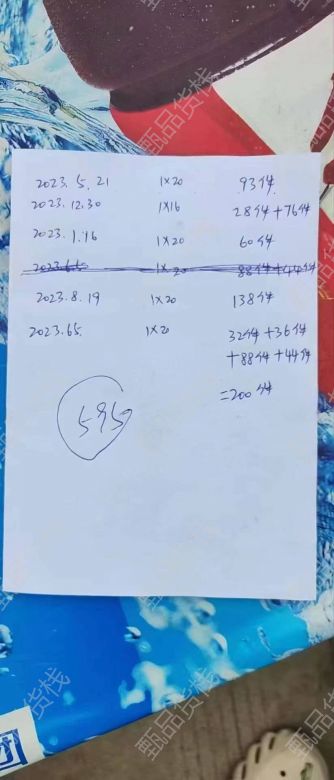 2023.5.21 1×20 93件
2023.12.30 1×16 28件+76件
2023.1.16 1×20 60件
2023.6.5 1×20 88件+44件
2023.8.19 1×20 138件
2023.65. 1×20 32件+36件
+88件+44件
=200件
595
甄品货栈